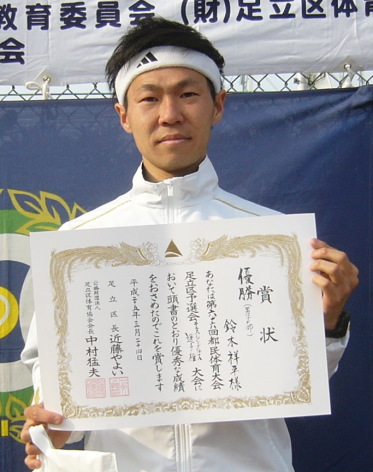 教育委員会 (財)足立区体育
会
賞状
優勝
鈴木祥平様
あなたは第六十六回都民体育大会
足立区予選会
大会に
おいて頭書のとおり優秀な成績
をおさめたのでこれを賞します
平成二十五年三月二十四日
足立区長 近藤やよい
公益財団法人
足立区体育協会会長 中村猛夫